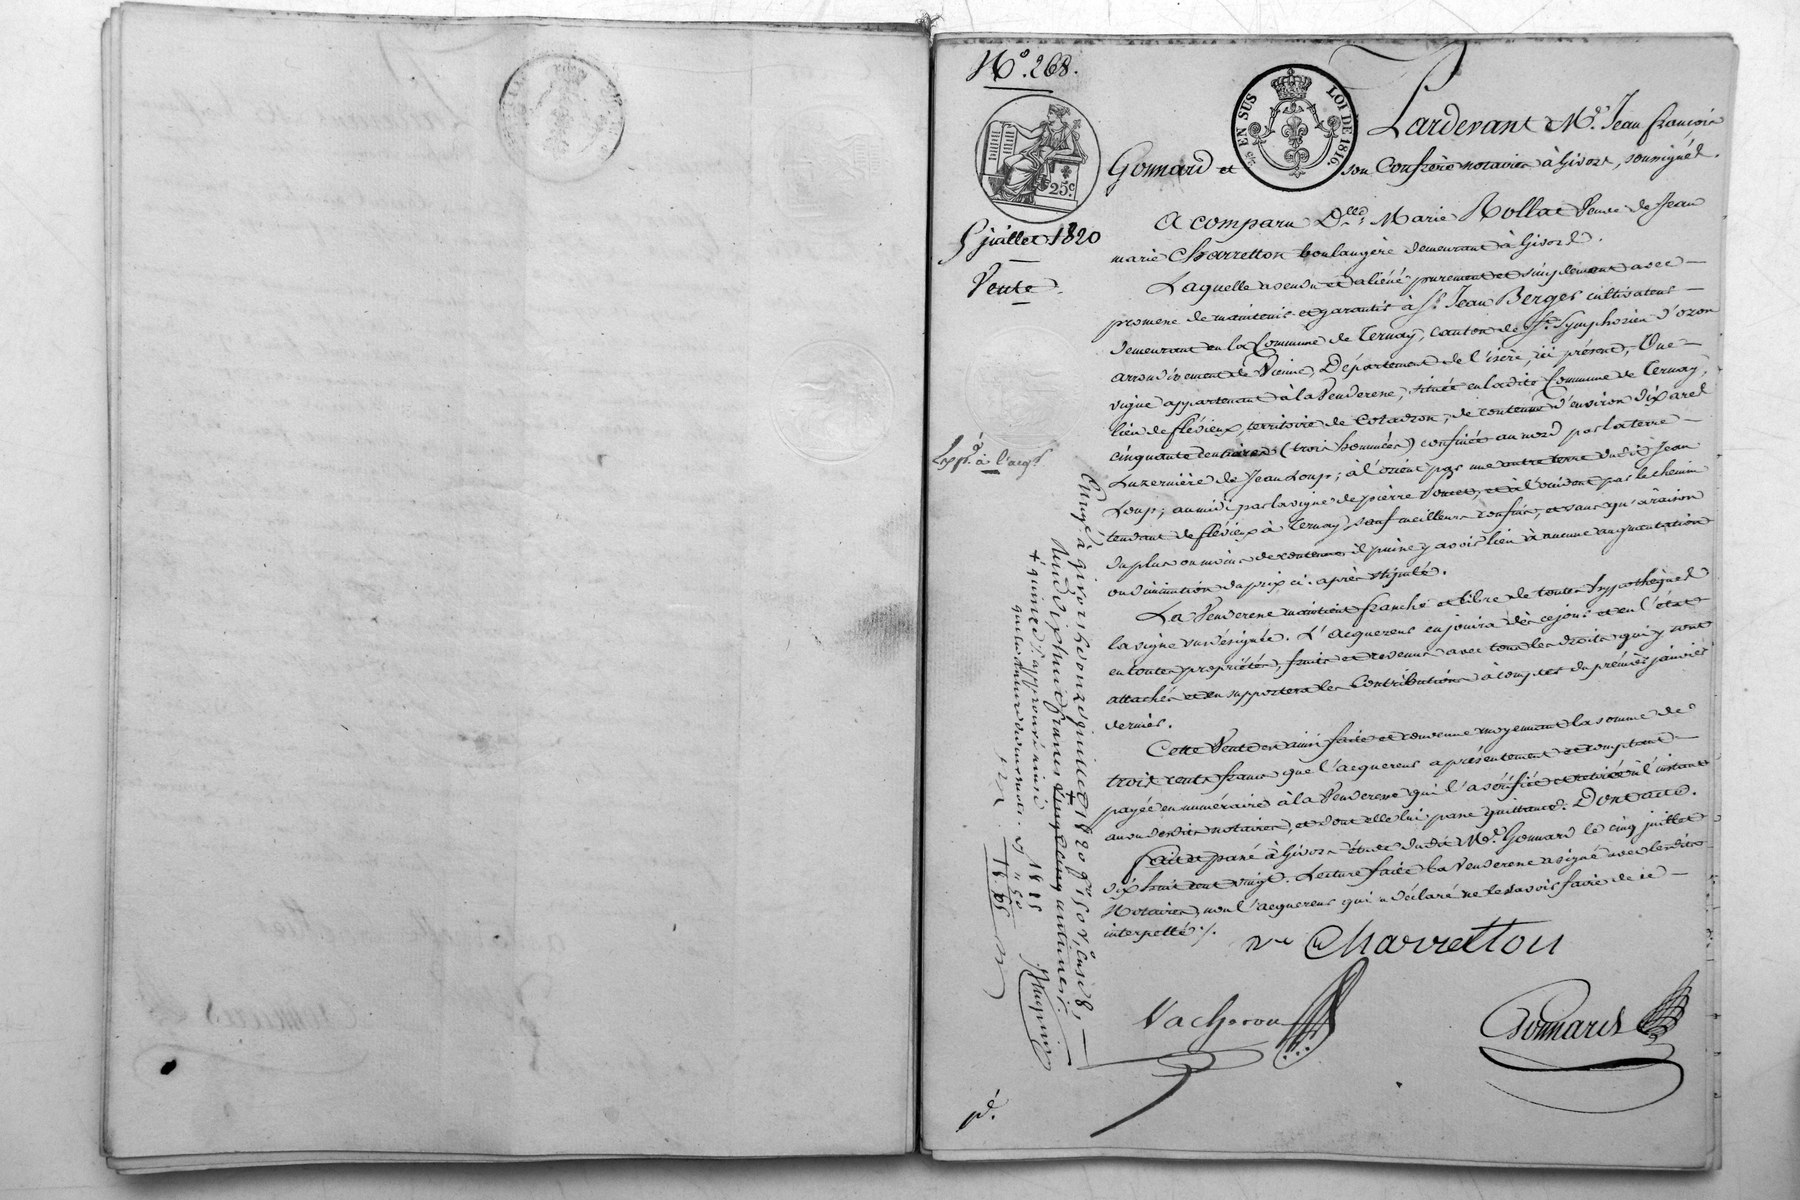 N.º 268.
EN SUS
LOI DE 1816.
25.c
5 juillet 1820
Vente.
Expé. à l'acqr
Pardevant Me. Jean françois
Gonnard et son Confrère notaires à Givors, soussignés.
A comparu Dlle. Marie Rollat Veuve de Jean
marie Charretton boulangère demeurant à Givors.
Laquelle a vendu et aliéné purement et simplement avec
promesse de maintenir et garantir à Sr. Jean Berges cultivateur
demeurant en la Commune de Ternay, canton de St. Symphorien d'ozon
arrondissement de Vienne, Département de l'isère, ici présent, Une
vigne appartenant à la Venderesse, située en ladite Commune de Ternay,
lieu de flévieux, territoire de Cotadzon, de contenue d'environ dix ares
cinquante centiares (trois hommées) confinée au nord par la terre
Luzernière de Jean Loup; à l'orient par une autre terre dudit Jean
Loup; au midi par la vigne de pierre et à l'occident par le chemin
tendant de flévieux à Ternay, sauf meilleurs confins, et sans qu'à raison
du plus ou moins de contenue il puisse y avoir lieu à aucune augmentation
ou diminution du prix ci-après stipulé.
La Venderesse maintient franche et libre de toutes hypothèques
la vigne susdésignée. L'acquereur en jouira dès ce jour et en l'état
en toutes propriétés, fruits et revenus avec tous les droits qui y sont
attachés et en supportera les Contributions à compter du premier janvier
dernier.
Cette Vente est ainsi faite et convenue moyennant la somme de
trois cents francs que l'acquereur a présentement et comptant
payée en numéraire à la Venderesse qui l'a vérifiée et retirée à l'instant
au vu desdits notaires, et dont elle lui passe quittance. Dont acte.
fait et passé à Givors étude dudit Me. Gonnard le cinq juillet
dix huit cent vingt. Lecture faite la Venderesse a signé avec lesdits
Notaires, non l'acquereur qui a déclaré ne le savoir faire de ce
interpellé ./.
Ve Charretton
Vacheron
Gonnard
Enregé à givors le onze juillet 1820 fo 150 V, Case 8,
Reçu dix huit francs vingt cinq centimes
+ quinze f. approuvé ainsi